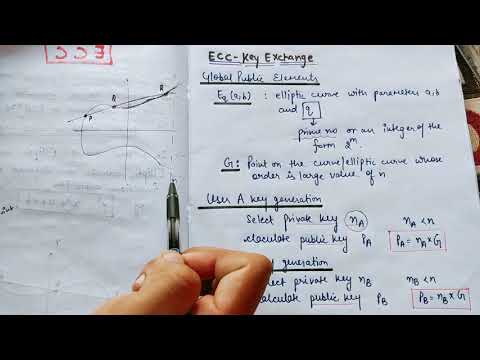 ECC - Key Exchange
Global Public Elements
Eq (a,b) : elliptic curve with parameters a,b
and q
prime no. or an integer of the
form 2^m
G : Point on the curve/elliptic curve whose
order is large value of n
User A Key generation
Select private key nA nA < n
calculate public key PA PA = nA × G
generation
private key nB nB < n
calculate public key PB PB = nB × G